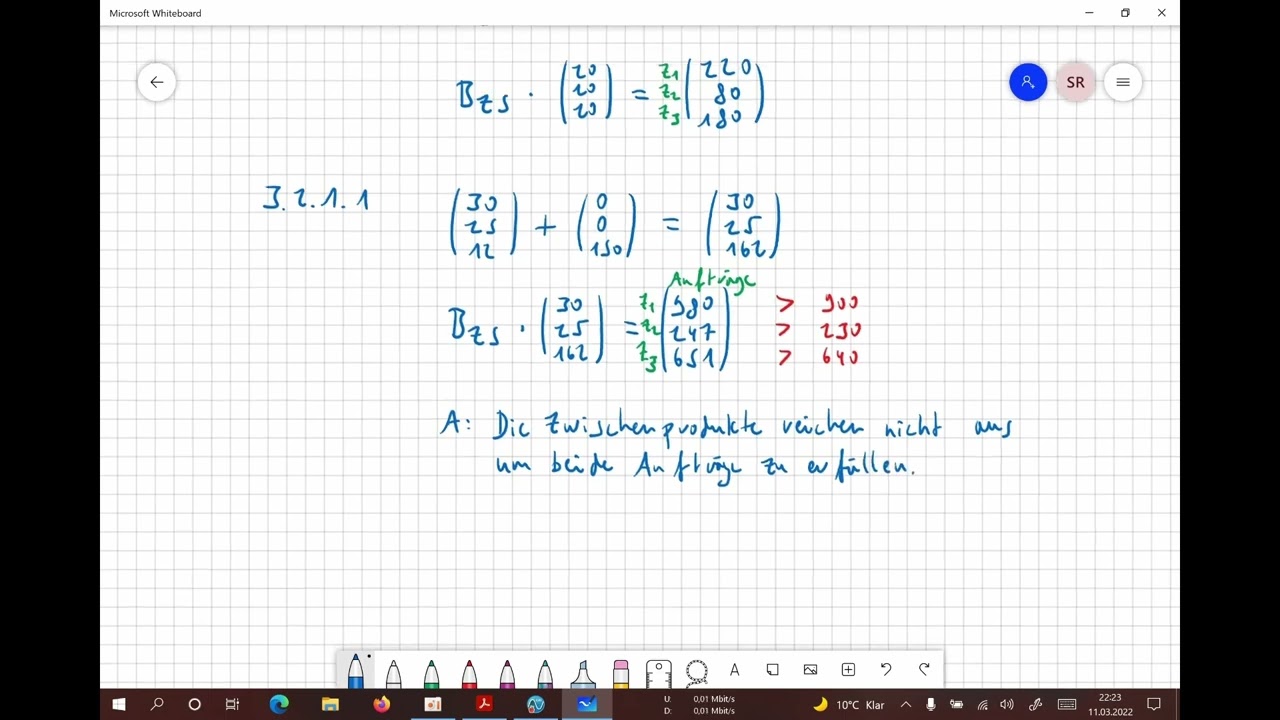 Microsoft Whiteboard
SR
B_ZS · (20 20 20) = z1 z2 z3 (220 80 180)
3.2.1.1 (30 25 12) + (0 0 150) = (30 25 162)
Aufträge
B_ZS · (30 25 162) = z1 z2 z3 (980 247 651) > 900 > 230 > 640
A: Die Zwischenprodukte reichen nicht aus
um beide Aufträge zu erfüllen.
A
U: 0,01 Mbit/s
D: 0,01 Mbit/s
10°C Klar
22:23
11.03.2022